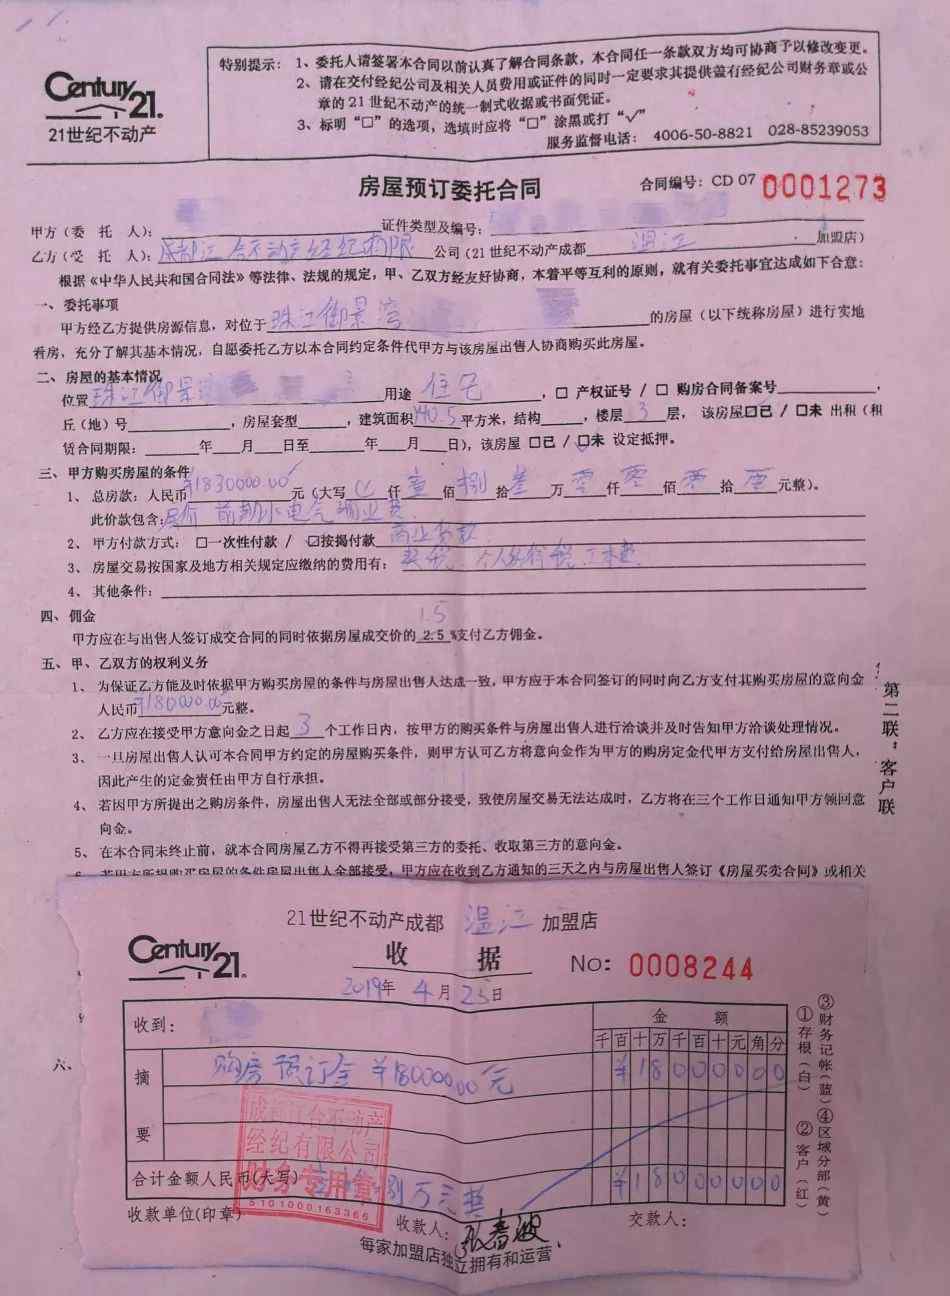 Century 21.
21世纪不动产
特别提示：1、委托人请签署本合同以前认真了解合同条款，本合同任一条款双方均可协商予以修改变更。
2、请在交付经纪公司及相关人员费用或证件的同时一定要求其提供盖有经纪公司财务章或公
章的21世纪不动产的统一制式收据或书面凭证。
3、标明“□”的选项，选填时应将“□”涂黑或打“√”
服务监督电话： 4006-50-8821 028-85239053
房屋预订委托合同
合同编号：CD 07 0001273
甲方（委 托 人）： 证件类型及编号：
乙方（受 托 人）：成都江合不动产经纪有限 公司（21世纪不动产成都 温江 加盟店）
根据《中华人民共和国合同法》等法律、法规的规定，甲、乙双方经友好协商，本着平等互利的原则，就有关委托事宜达成如下合意：
一、委托事项
甲方经乙方提供房源信息，对位于 珠江御景湾 的房屋（以下统称房屋）进行实地
看房，充分了解其基本情况，自愿委托乙方以本合同约定条件代甲方与该房屋出售人协商购买此房屋。
二、房屋的基本情况
位置 珠江御景 用途 住宅 ，□ 产权证号 / □ 购房合同备案号 ，
丘（地）号 ，房屋套型 ，建筑面积 140.5 平方米，结构 ，楼层 3 层， 该房屋☑已 / □未 出租（租
赁合同期限： 年 月 日至 年 月 日），该房屋 □已 / ☑未 设定抵押。
三、甲方购买房屋的条件
1、 总房款：人民币 ¥1830000.00 元（大写 仟 壹 佰 捌 拾 叁 万 零 仟 零 佰 零 拾 零 元整）。
此价款包含：房价 前期水电气物业费
2、 甲方付款方式： □一次性付款 / ☑按揭付款 商业贷款
3、 房屋交易按国家及地方相关规定应缴纳的费用有： 契税 个人所得税 工本费
4、 其他条件：
四、佣金
1.5
甲方应在与出售人签订成交合同的同时依据房屋成交价的 2.5 %支付乙方佣金。
五、甲、乙双方的权利义务
1、 为保证乙方能及时依据甲方购买房屋的条件与房屋出售人达成一致，甲方应于本合同签订的同时向乙方支付其购买房屋的意向金
人民币 ¥180000.00 元整。
2、 乙方应在接受甲方意向金之日起 3 个工作日内，按甲方的购买条件与房屋出售人进行洽谈并及时告知甲方洽谈处理情况。
3、 一旦房屋出售人认可本合同甲方约定的房屋购买条件，则甲方认可乙方将意向金作为甲方的购房定金代甲方支付给房屋出售人，
因此产生的定金责任由甲方自行承担。
4、 若因甲方所提出之购房条件，房屋出售人无法全部或部分接受，致使房屋交易无法达成时，乙方将在三个工作日通知甲方领回意
向金。
5、 在本合同未终止前，就本合同房屋乙方不得再接受第三方的委托、收取第三方的意向金。
6、 若甲方所提购买房屋的条件房屋出售人全部接受，甲方应在收到乙方通知的三天之内与房屋出售人签订《房屋买卖合同》或相关
第二联：客户联
六、
21世纪不动产成都 温江 加盟店
Century 21.
收 据
No: 0008244
2019年 4 月 25 日
收到：
金 额
千 百 十 万 千 百 十 元 角 分
摘 要
购房预订金 ¥180000.00元
¥ 1 8 0 0 0 0 0 0
合计金额人民币(大写) 捌万元整
¥ 1 8 0 0 0 0 0 0
成都江合不动产
经纪有限公司
财务专用章
5101000163366
收款单位(印章)
收款人： 张春波
交款人：
每家加盟店独立拥有和运营.
①存根(白) ②客户(红)
③财务记帐(蓝) ④区域分部(黄)